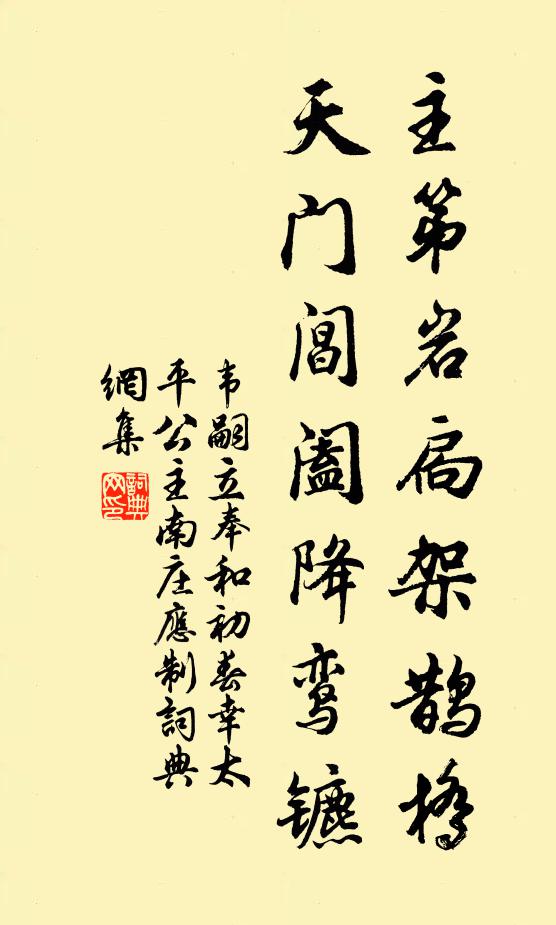 主第岩扃架鹊桥
天门阊阖降鸾镳
韦嗣立奉和初春幸太
平公主南庄應制詞典
網集
詞典網印